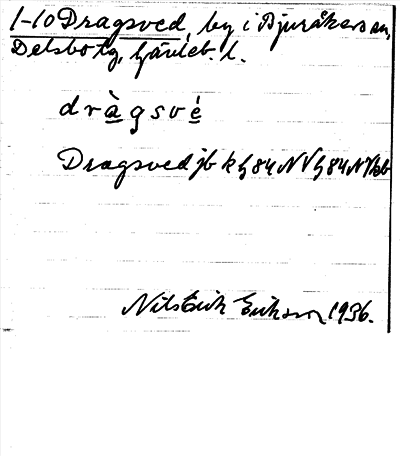 1-10 Dragsved, by i Bjuråkers sn,
Delsbo tg, Gävleb. l.
dràgsvé
Dragsved jb k h 84 NV h 84 NV kb
Nils Erik Erikson 1936.